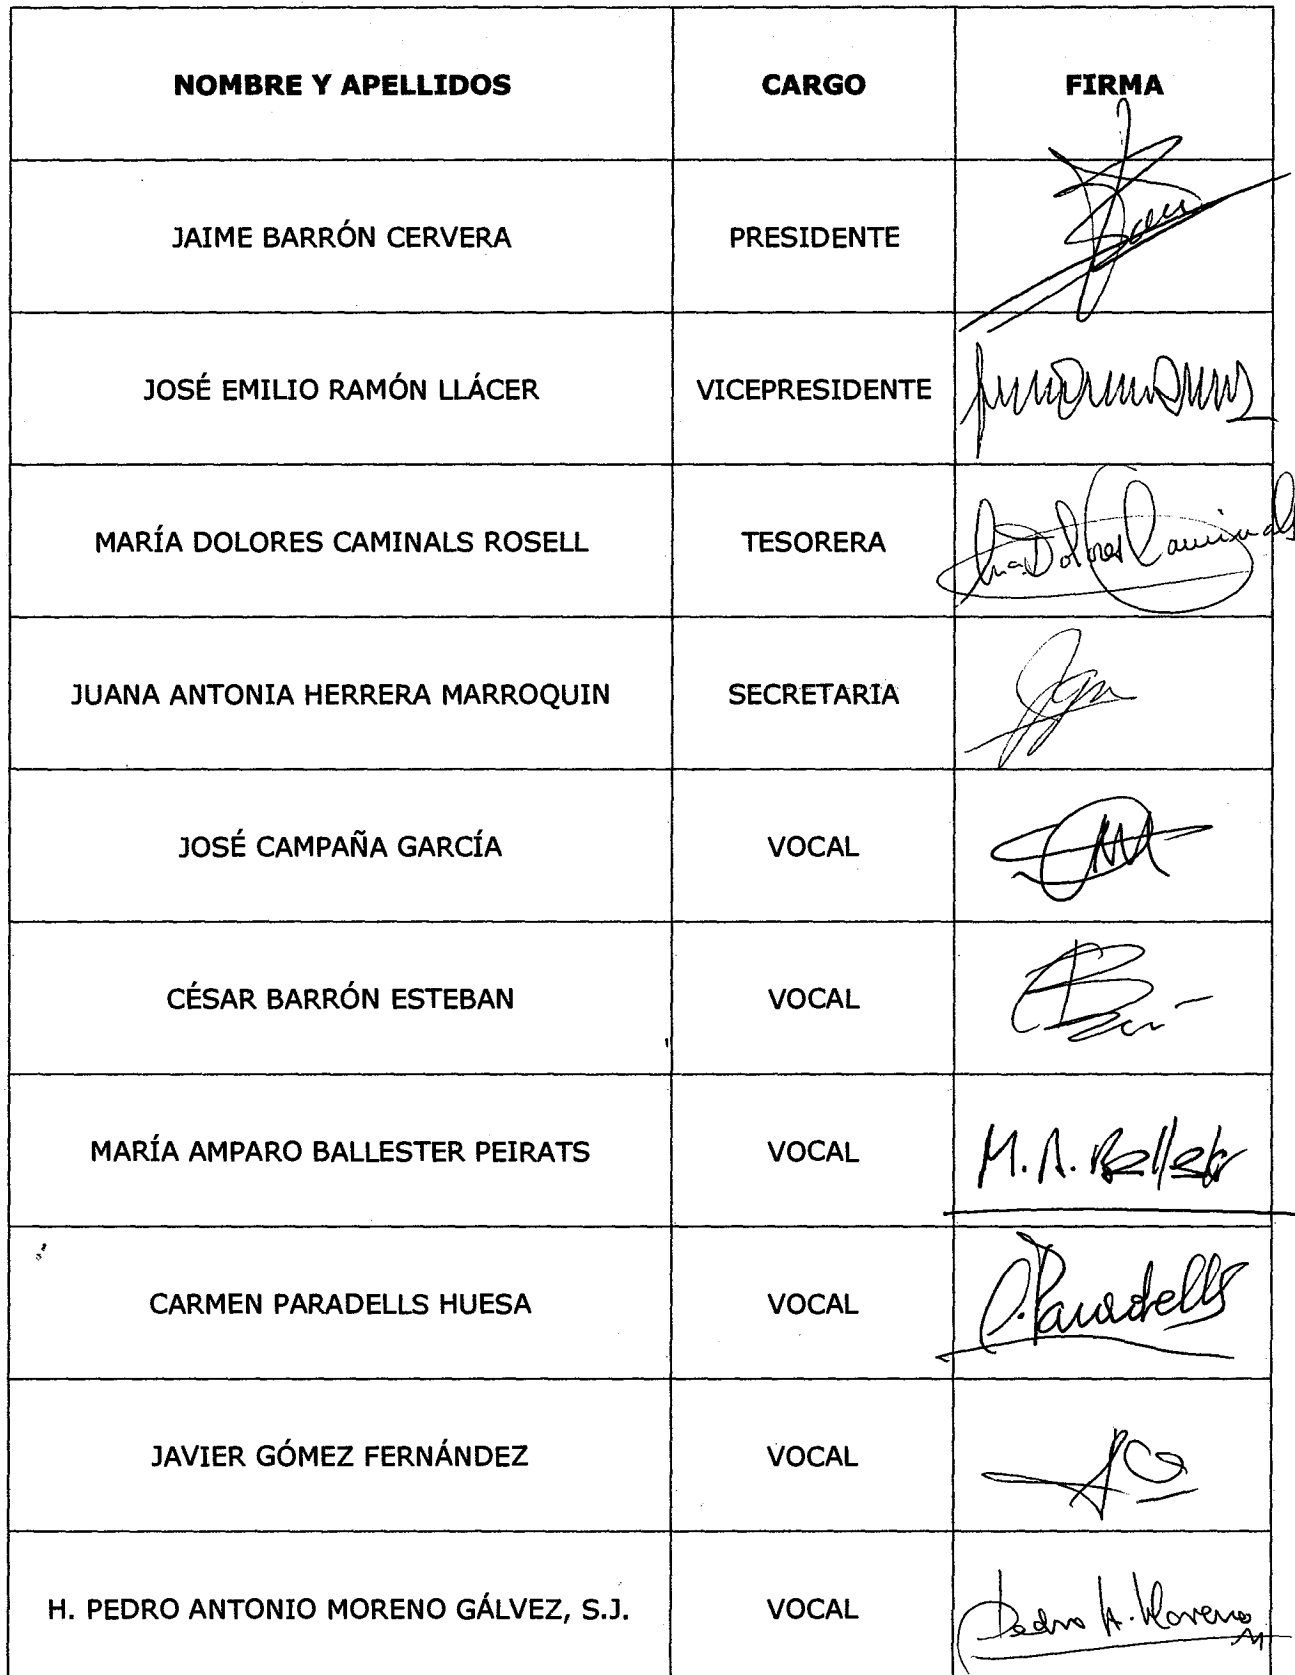 NOMBRE Y APELLIDOS CARGO FIRMA
JAIME BARRÓN CERVERA PRESIDENTE
JOSÉ EMILIO RAMÓN LLÁCER VICEPRESIDENTE
MARÍA DOLORES CAMINALS ROSELL TESORERA Mª Dolores Caminals
JUANA ANTONIA HERRERA MARROQUIN SECRETARIA
JOSÉ CAMPAÑA GARCÍA VOCAL
CÉSAR BARRÓN ESTEBAN VOCAL
MARÍA AMPARO BALLESTER PEIRATS VOCAL M. A. Ballester
CARMEN PARADELLS HUESA VOCAL C. Paradells
JAVIER GÓMEZ FERNÁNDEZ VOCAL
H. PEDRO ANTONIO MORENO GÁLVEZ, S.J. VOCAL Pedro A. Moreno